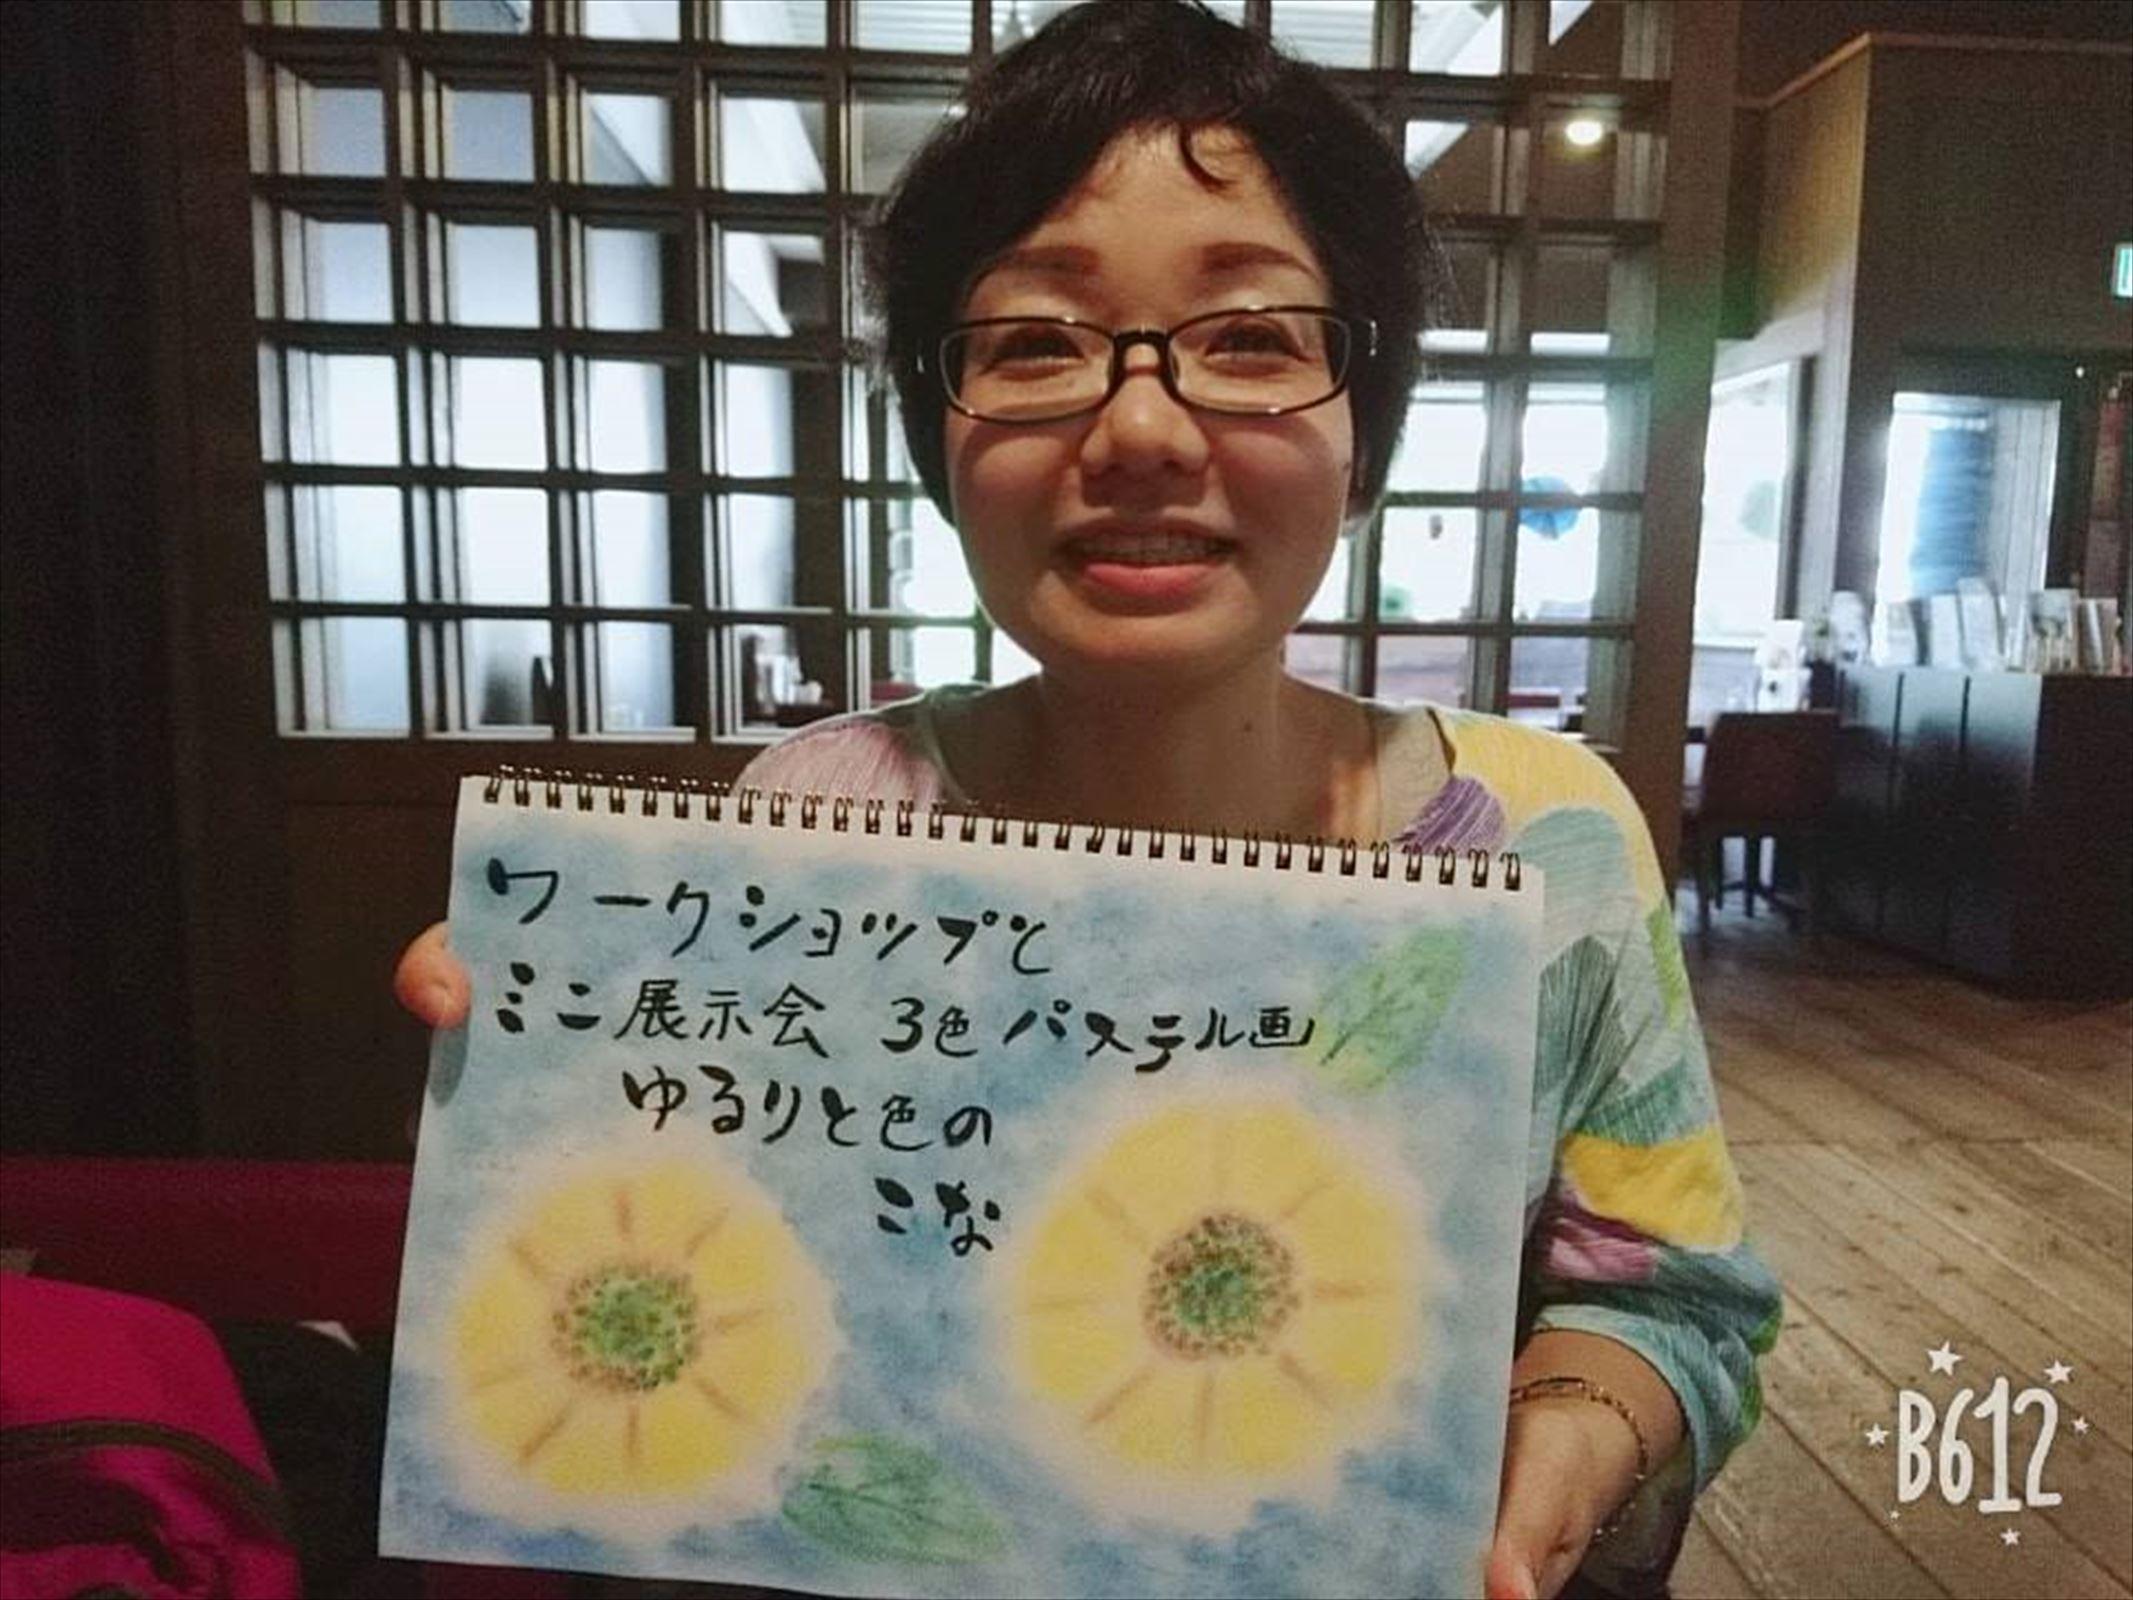 ワークショップと
ミニ展示会 3色パステル画
ゆるりと色の
こな
B612